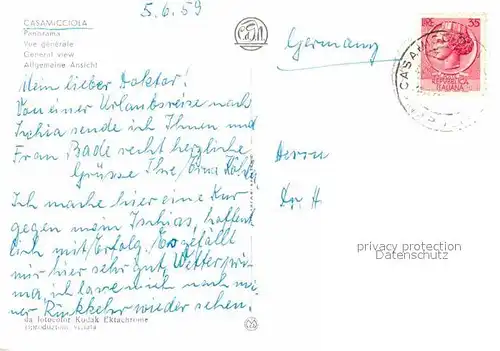 5.6.59
CASAMICCIOLA
Panorama
Vue générale
General view
Allgemeine Ansicht
Mein lieber Doktor!
Von einer Urlaubsreise nach
Ischia sende ich Ihnen und
Frau Bade recht herzliche
Grüsse Ihre Erna
Ich mache hier eine Kur
gegen mein Ischias, hoffent
lich mit Erfolg. Es gefällt
mir hier sehr gut, Wetter pri
ma, ich lasse mich nach mei
ner Rückkehr wieder sehen.
da fotocolor Kodak Ektachrome
riproduzione vietata
Germany
LIRE 35
REPUBBLICA
ITALIANA
Herrn
Dr. H
privacy protection
Datenschutz